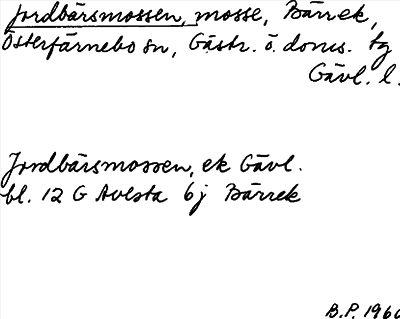 Jordbärsmossen, mosse, Bärrek,
Österfärnebo sn, Gästr. ö. doms. tg
Gävl. l.
Jordbärsmossen, ek Gävl.
bl. 12 G Avesta 6j Bärrek
B.P. 1960